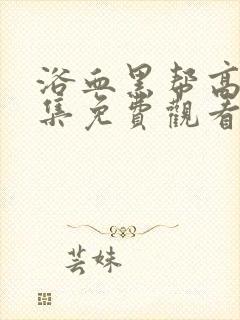 浴血黑帮高
集免費觀看
芸妹